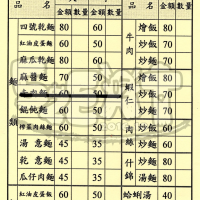 品 名 金額 數量 金額 數量 品 名 金額 數量
四號乾麵 80 60
紅油皮蛋麵 80 60
麻瓜乾麵 80 60
麻醬麵 70 50
肉麵 60 50
餛飩麵 60 50
榨菜肉絲麵 60 50
湯意麵 45 35
乾意麵 45 35
瓜仔肉麵 45 35
紅油皮蛋 60 50
麵類
牛肉 燴飯 70
炒飯 70
炒麵 70
蝦仁 燴飯 70
炒飯 70
炒麵 70
肉絲 炒飯 60
炒麵 60
什錦 炒麵 80
湯麵 80
蛤蜊湯 40